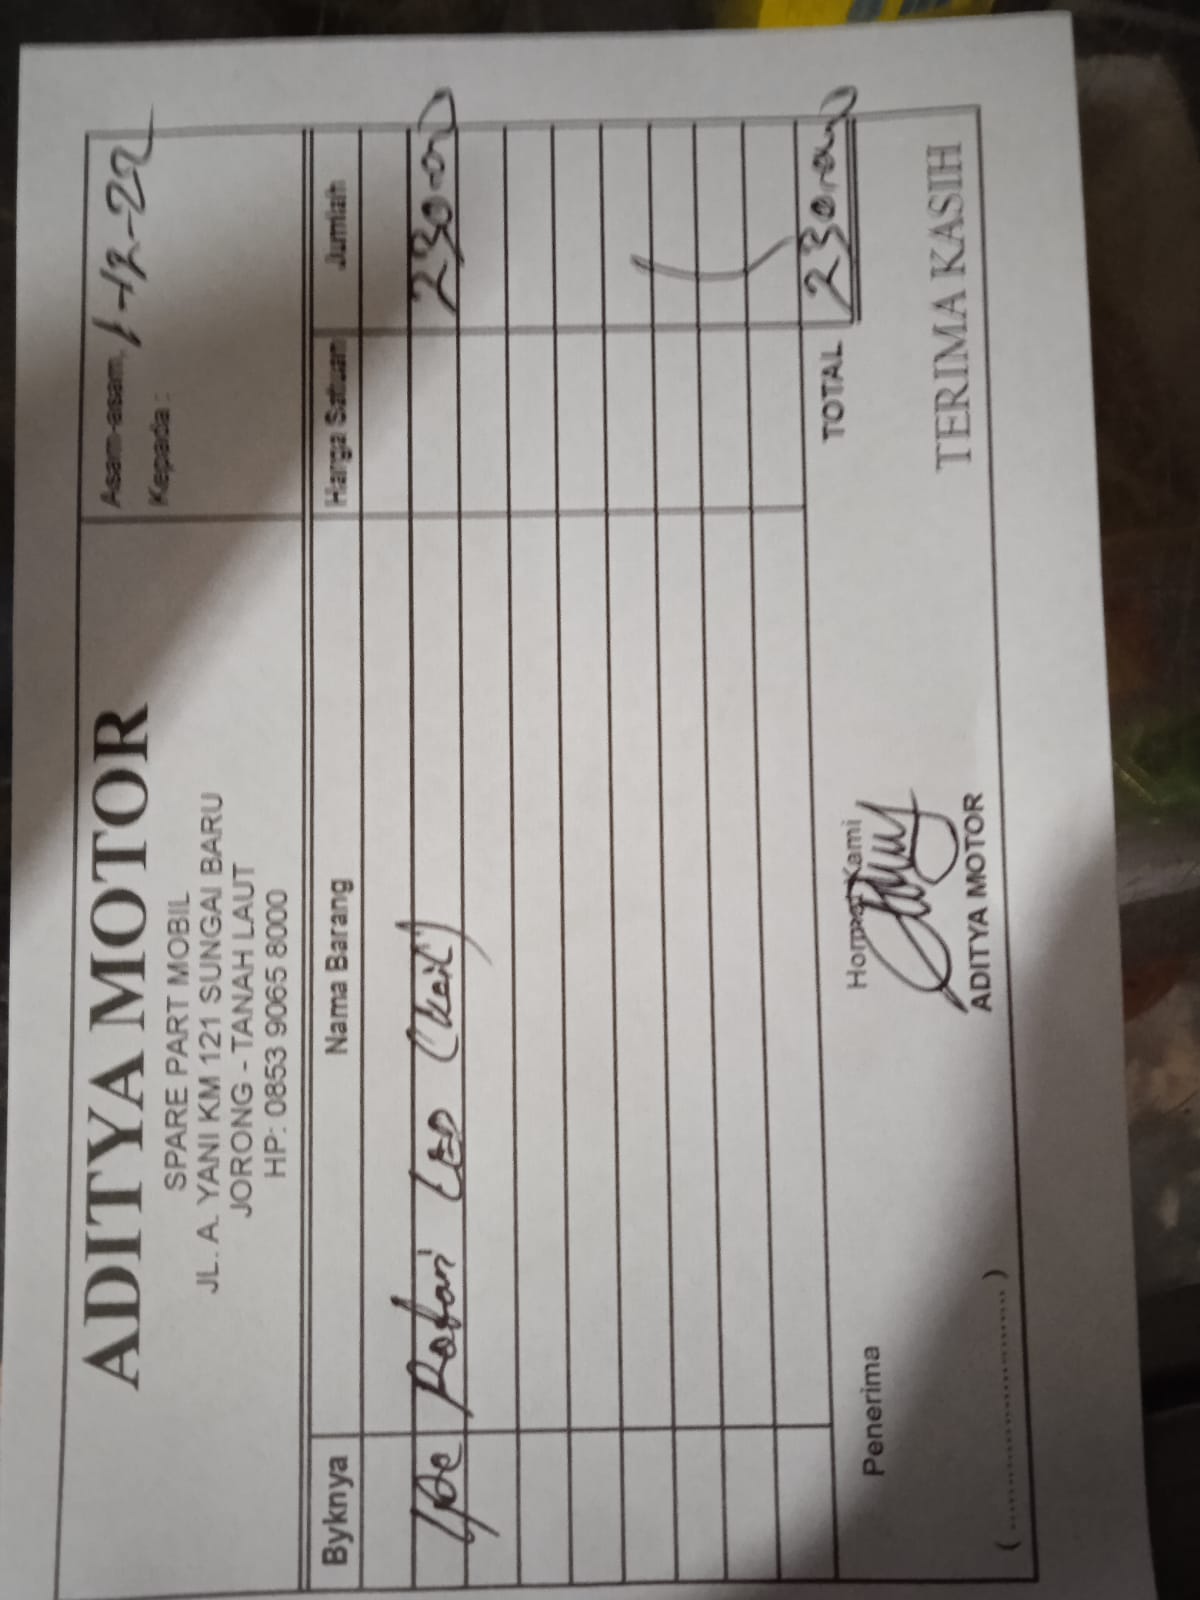 ADITYA MOTOR
SPARE PART MOBIL
JL. A. YANI KM 121 SUNGAI BARU
JORONG - TANAH LAUT
HP: 0853 9065 8000
Asam-asam, 1-12-22
Kepada :
Byknya Nama Barang Harga Satuan Jumlah
1 pc Rotari LED (Kcil) 230.000
TOTAL 230.000
Penerima
Hormat Kami
ADITYA MOTOR
TERIMA KASIH
(............................)